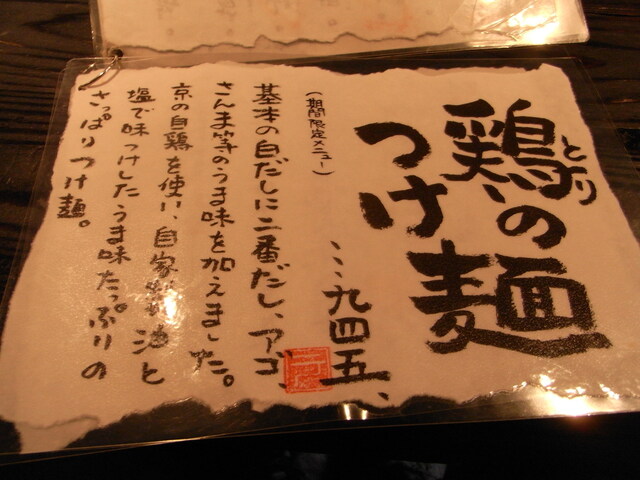 鶏の
とり
つけ麺
・・・九四五、
（期間限定メニュー）
基本の白だしに二番だし、アゴ、
さんま等のうま味を加えました。
京の白鶏を使い、自家製油と
塩で味つけしたうま味たっぷりの
さっぱりつけ麺。